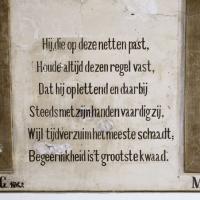 Hij, die op deze netten past,
Houde altijd dezen regel vast,
Dat hij oplettend en daarbij
Steeds met zijn handen vaardig zij,
Wijl tijdverzuim het meeste schaadt;
Begeerinkheid is't grootste kwaad.
G.
M